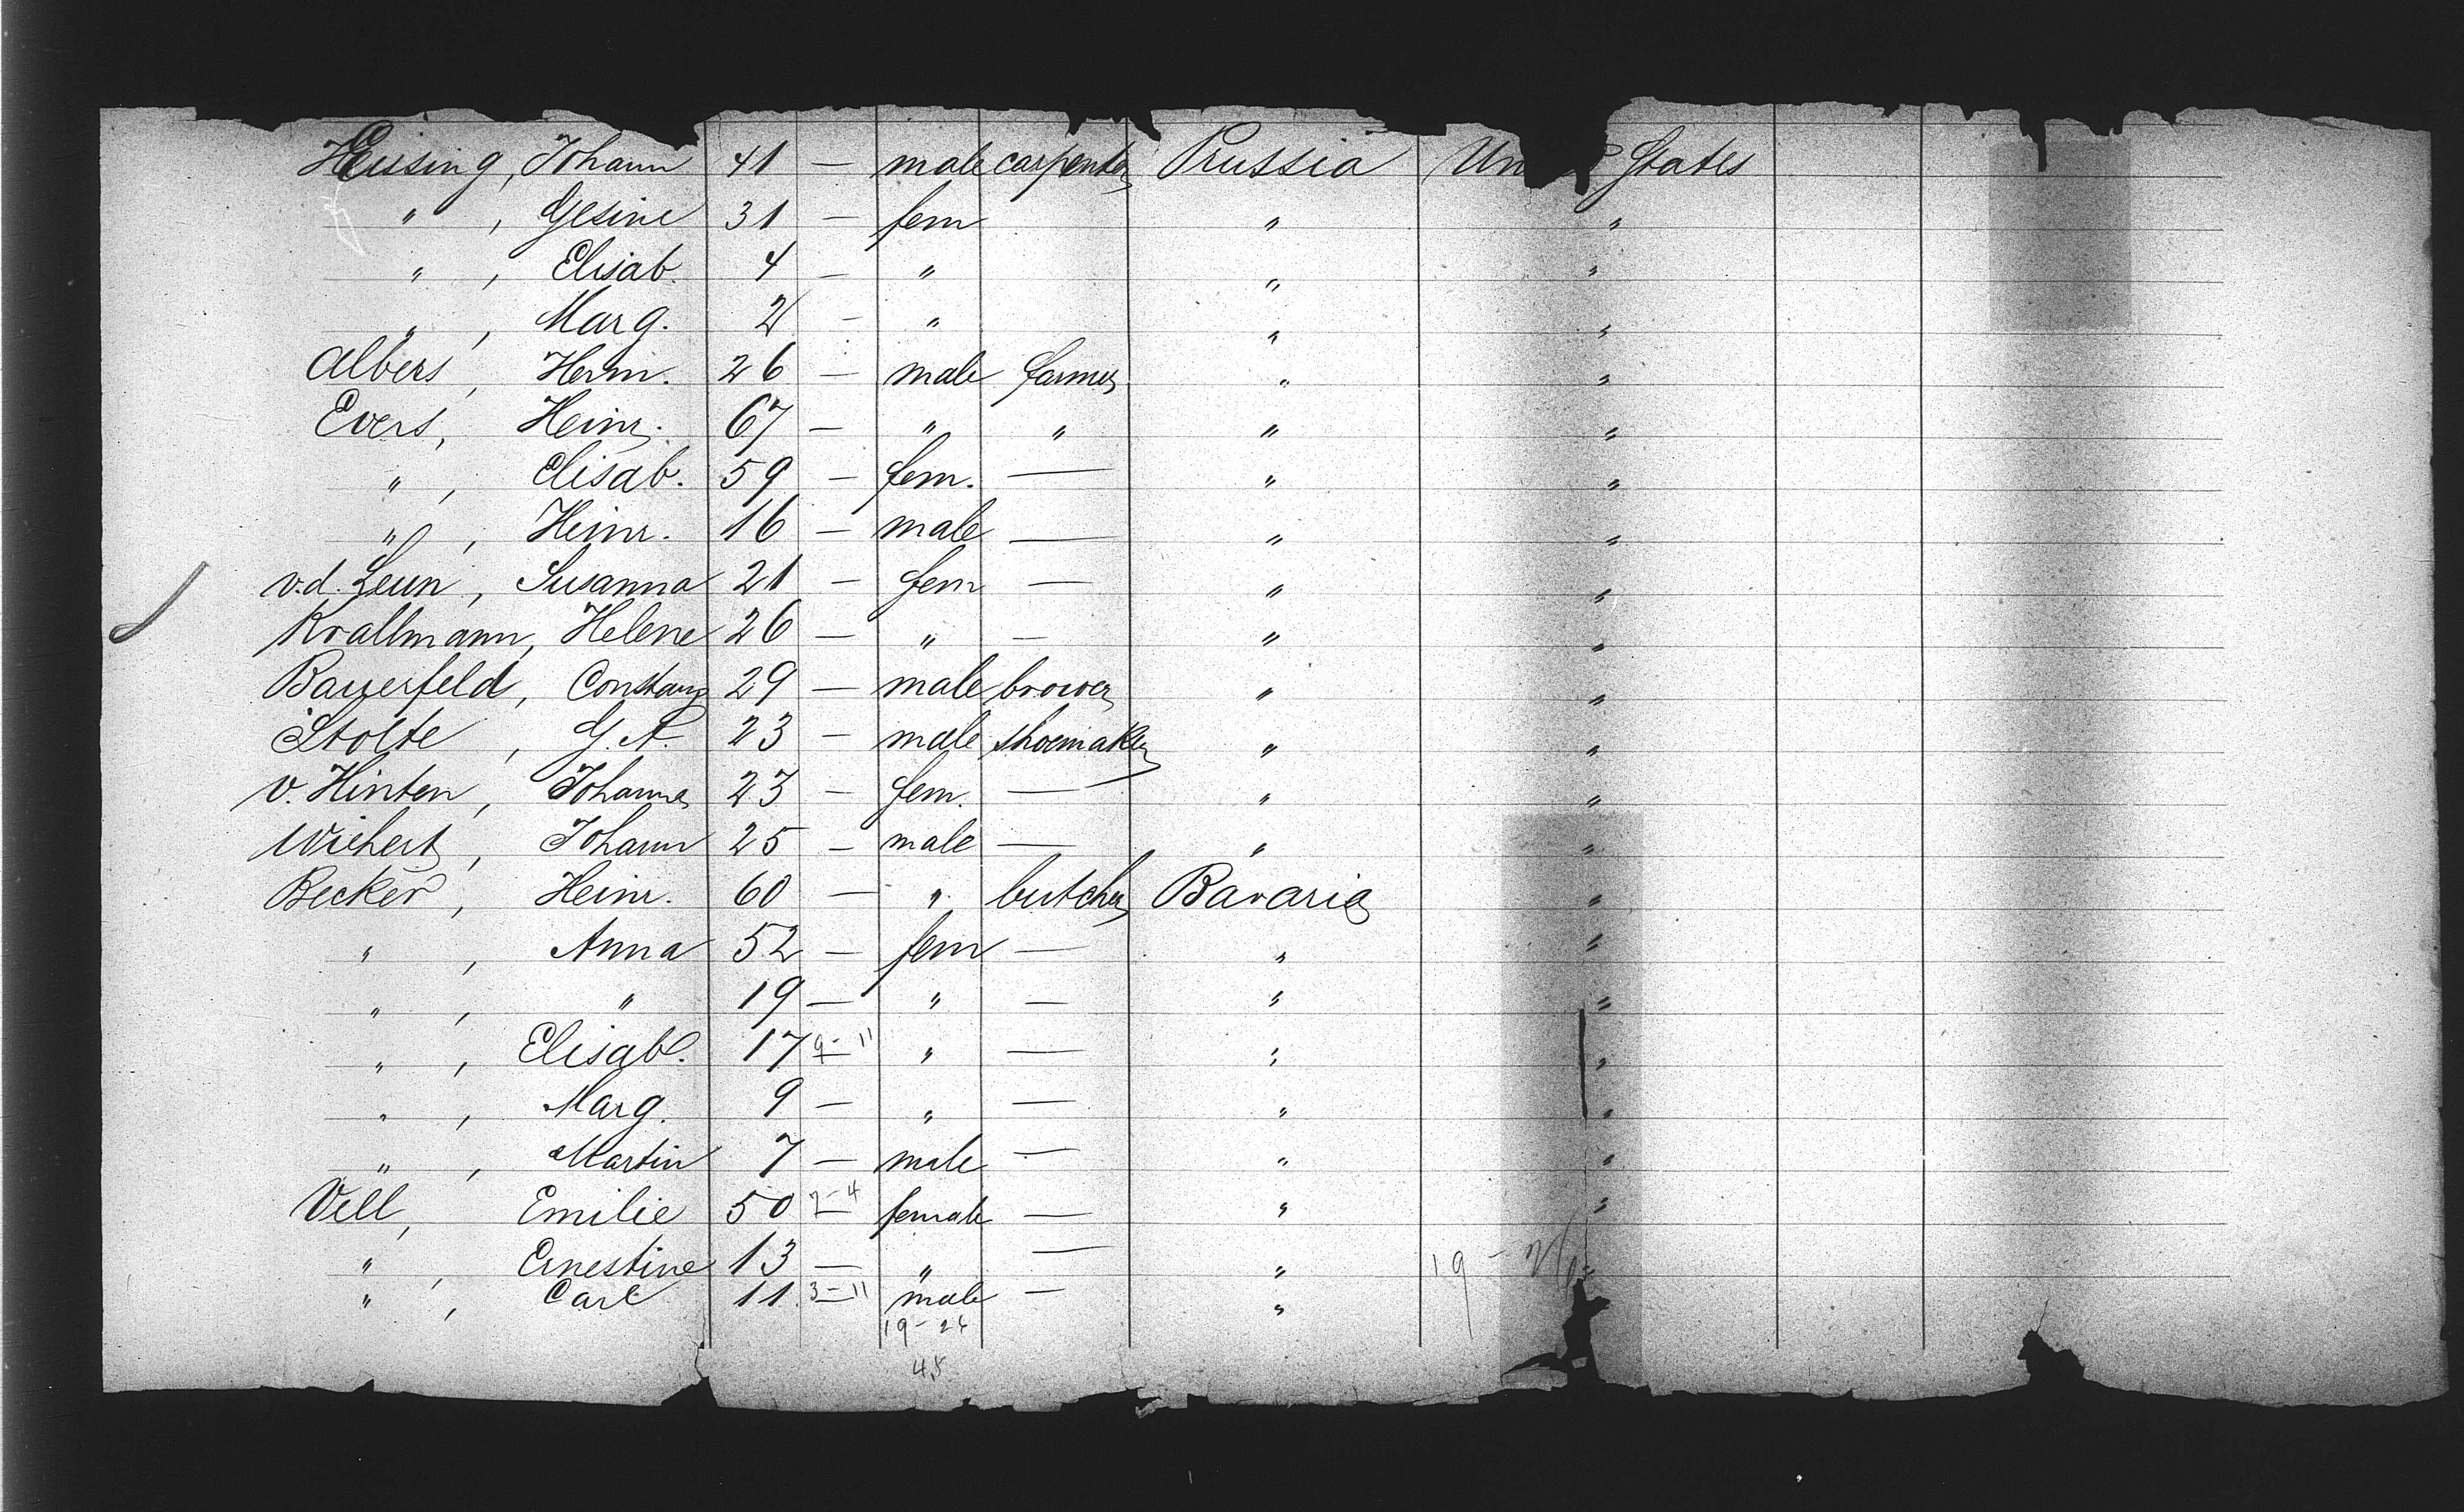 Heissing, Johann 41 — male carpenter Prussia Un States
" , Gesine 31 — fem " "
" , Elisab. 4 — " " "
" , Marg. 2 — " " "
Albers, Herm. 26 — male farmer " "
Evers, Heinr. 67 — " " " "
" , Elisab. 59 — fem. — " "
" , Heinr. 16 — male — " "
v.d. Leun, Susanna 21 — fem — " "
Krallmann, Helene 26 — " — " "
Bauerfeld, Constanz 29 — male brower " "
Stolte, G. A. 23 — male shoemaker " "
v. Hinten, Johanna 23 — fem. — " "
Wichert, Johann 25 — male — " "
Becker, Heinr. 60 — " butcher Bavaria "
" , Anna 52 — fem — " "
" , " 19 — " — " "
" , Elisab. 17 9-11 — " — " "
" , Marg. 9 — " — " "
" , Martin 7 — male — " "
Vell, Emilie 50 2-4 — female — " "
" , Ernestine 13 — " — " 19 - "
" , Carl 11 3-11 — male — "
19-26
45